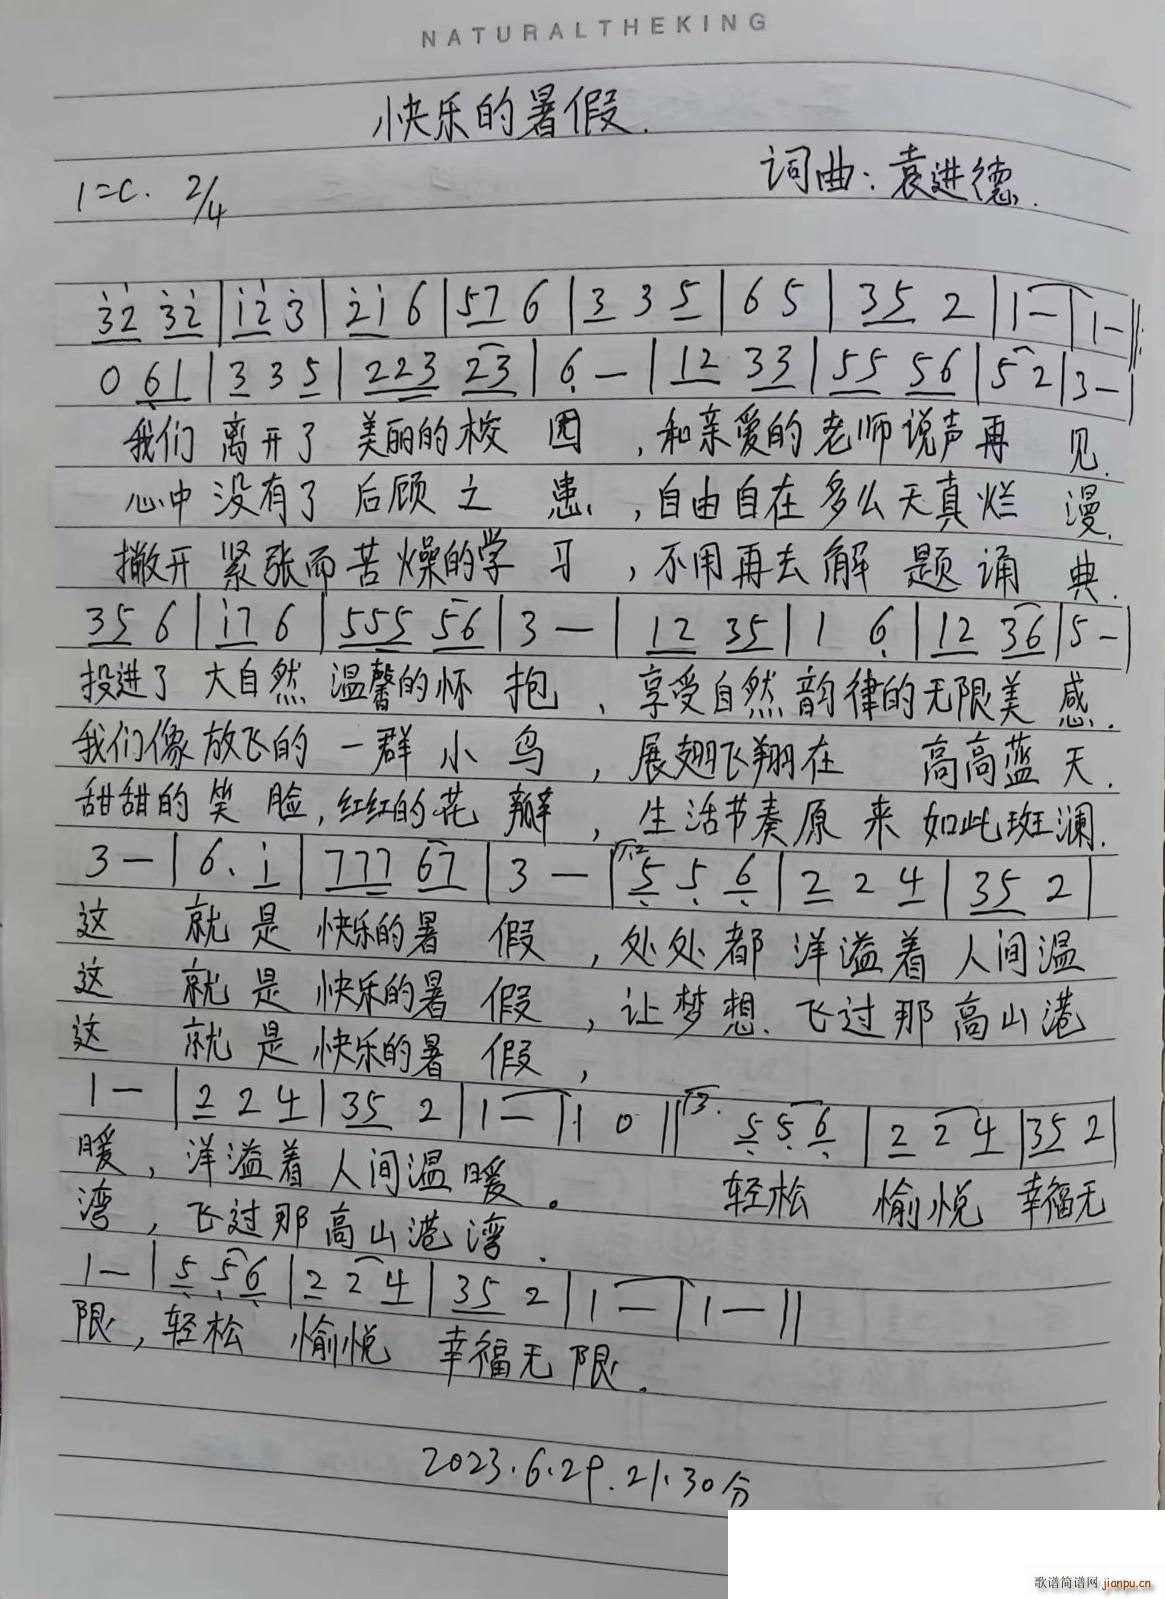 NATURALTHEKING
快乐的暑假.
1=C. 2/4
词曲：袁进德.
3̲̇2̲̇ 3̲̇2̲̇ | 1̲̇2̲̇ 3̇ | 2̲̇1̲̇ 6 | 5̲7̲ 6 | 3̲ 3 5̲ | 6 5 | 3̲5̲ 2 | 1 — | 1 - ‖:
0 6̲̣1̲ | 3̲ 3 5̲ | 2̲2̲3̲ 2̲3̲ | 6̣ — | 1̲2̲ 3̲3̲ | 5̲5̲ 5̲6̲ | 5 2 | 3 - |
我们 离开了 美丽的校 园 ，和亲爱的 老师说声再 见.
心中 没有了 后顾 之 患 ，自由自在 多么天真烂 漫.
撇开 紧张而苦 燥的学 习 ，不用再去 解 题 诵 典.
3̲5̲ 6 | 1̲̇7̲ 6 | 5̲5̲5̲ 5̲6̲ | 3 — | 1̲2̲ 3̲5̲ | 1 6̣ | 1̲2̲ 3̲6̲ | 5 - |
投进了 大自然 温馨的怀 抱 、享受自然 韵律的无限美 感.
我们像 放飞的 一群 小 鸟 ，展翅飞翔在 高高蓝 天.
甜甜的 笑 脸，红红的花 瓣 ，生活节奏原 来 如此斑斓.
3 — | 6. 1̲̇ | 7̲7̲7̲ 6̲7̲ | 3 — | 1.2 5̲̣ 5̣ 6̲̣ | 2̲ 2 4̲ | 3̲5̲ 2 |
这 就 是 快乐的暑 假 ，处处都 洋溢着 人间温
这 就 是 快乐的暑 假 ，让梦想. 飞过那 高山港
这 就 是 快乐的暑 假 ，
1 — | 2̲ 2 4̲ | 3̲5̲ 2 | 1 — | 1 0 ‖ 3. 5̲̣ 5̣ 6̲̣ | 2̲ 2 4̲ | 3̲5̲ 2 |
暖，洋溢着 人间温 暖。 轻松 愉悦 幸福无
湾，飞过那 高山港 湾.
1 — | 5̲̣ 5̣ 6̲̣ | 2̲ 2 4̲ | 3̲5̲ 2 | 1 — | 1 — ‖
限，轻松 愉悦 幸福无 限.
2023.6.29.21.30分
歌谱简谱网 jianpu.cn